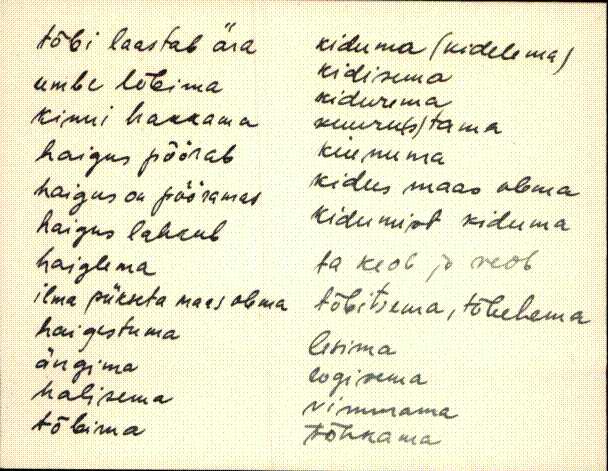 tõbi laastab ära
umbe lõbima
kinni hakkama
haigus pöörab
haigus on pööramas
haigus lahkub
haiglema
ilma püksata maas olema
haigestuma
ängima
halisema
tõbima
kiduma (kidelema)
kidisema
kidurema
kiinuma
kidus maas olema
kidumist kiduma
ta keob ja veob
tõbitsema, tõbelema
lesima
logisema
vimmama
tõhkama